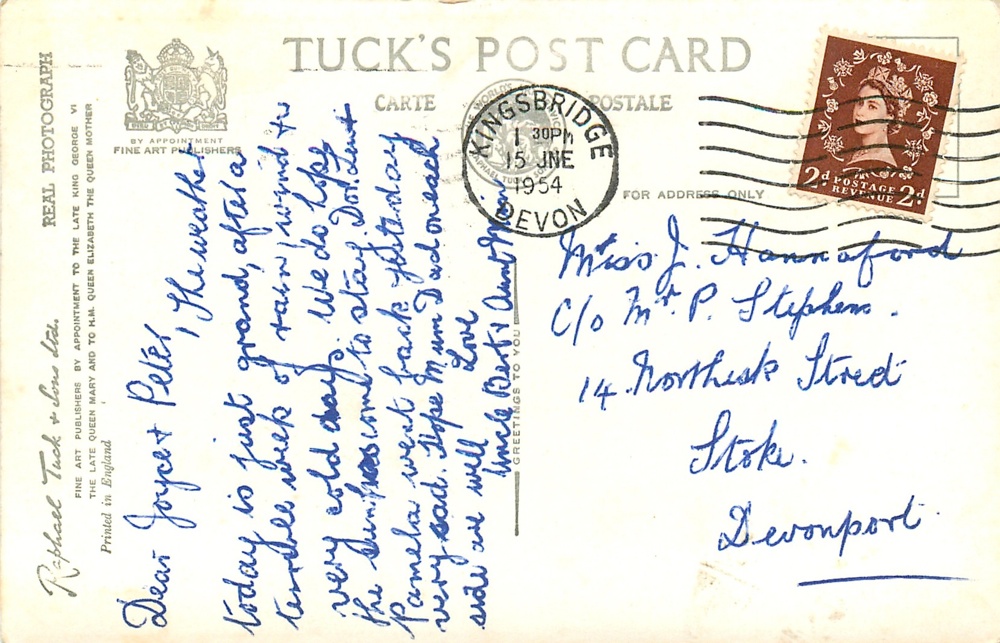 TUCK'S POST CARD
CARTE POSTALE
BY APPOINTMENT
FINE ART PUBLISHERS
FOR ADDRESS ONLY
KINGSBRIDGE
1 30PM
15 JNE
1954
DEVON
2d POSTAGE REVENUE 2d
REAL PHOTOGRAPH
Raphael Tuck & Sons Ltd.
FINE ART PUBLISHERS BY APPOINTMENT TO THE LATE KING GEORGE VI
THE LATE QUEEN MARY AND TO H.M. QUEEN ELIZABETH THE QUEEN MOTHER
Printed in England
GREETINGS TO YOU
Dear Joyce & Peter, The weather
today is just grand, after a
terrible week of rain, wind &
very cold days. We do hope
the sun has come to stay. Don &
Pamela went back yesterday
very sad. Hope Mum Dad & each
side are well
Love
Uncle Bert & Aunt
Miss J. Hannaford
C/o Mr. P. Stephens.
14 Northesk Street
Stoke.
Devonport.